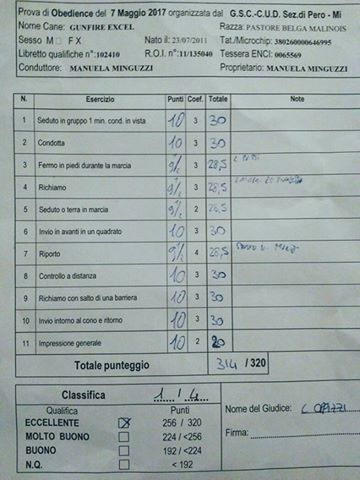 Prova di Obedience del 7 Maggio 2017 organizzata dal G.S.C.-C.U.D. Sez.di Pero - Mi
Nome Cane: GUNFIRE EXCEL Razza: PASTORE BELGA MALINOIS
Sesso M F X Nato il: 23/07/2011 Tat./Microchip: 380260000646995
Libretto qualifiche n°:102410 R.O.I. n°: 11/135040 Tessera ENCI: 0065569
Conduttore: MANUELA MINGUZZI Proprietario: MANUELA MINGUZZI
N. Esercizio Punti Coef. Totale Note
1 Seduto in gruppo 1 min. cond. in vista 10 3 30
2 Condotta 10 3 30
3 Fermo in piedi durante la marcia 9½ 3 28,5
4 Richiamo 9½ 3 28,5
5 Seduto o terra in marcia 9½ 2 28,5
6 Invio in avanti in un quadrato 10 3 30
7 Riporto 9½ 4 28,5
8 Controllo a distanza 10 3 30
9 Richiamo con salto di una barriera 10 3 30
10 Invio intorno al cono e ritorno 10 3 30
11 Impressione generale 10 2 20
Totale punteggio 314 / 320
Classifica 1 / 4
Qualifica Punti
ECCELLENTE X 256 / 320
MOLTO BUONO 224 / <256
BUONO 192 / <224
N.Q. < 192
Nome del Giudice:
Firma: